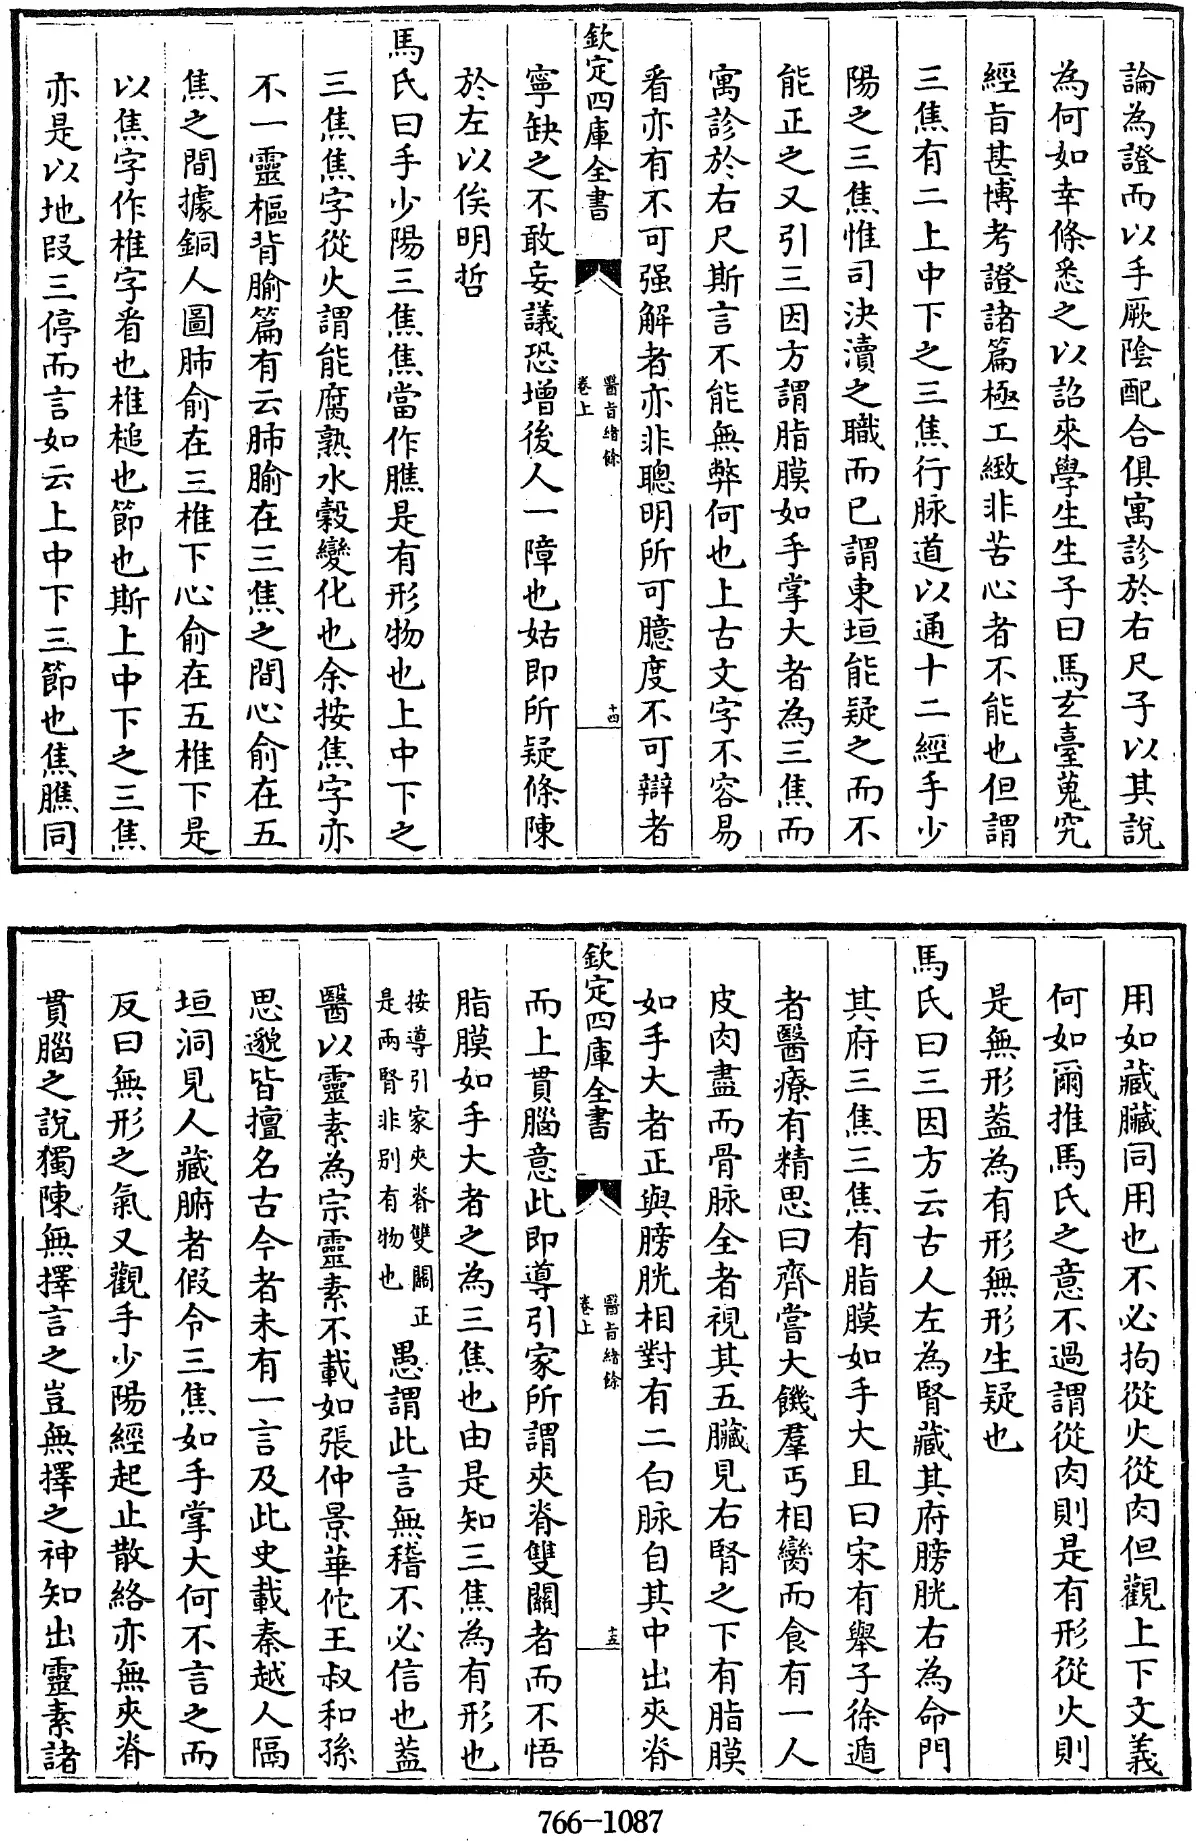 論為證而以手厥陰配合俱寓診於右尺子以其說
為何如幸條悉之以詔來學生生子曰馬玄臺蒐究
經旨甚博考證諸篇極工緻非苦心者不能也但謂
三焦有二上中下之三焦行脉道以通十二經手少
陽之三焦惟司決瀆之職而已謂東垣能疑之而不
能正之又引三因方謂脂膜如手掌大者為三焦而
寓診於右尺斯言不能無弊何也上古文字不容易
看亦有不可强解者亦非聰明所可臆度不可辯者
欽定四庫全書
醫旨緒餘
卷上
十四
寧缺之不敢妄議恐增後人一障也姑即所疑條陳
於左以俟明哲
馬氏曰手少陽三焦焦當作膲是有形物也上中下之
三焦焦字從火謂能腐熟水穀變化也余按焦字亦
不一靈樞背腧篇有云肺腧在三焦之間心俞在五
焦之間據銅人圖肺俞在三椎下心俞在五椎下是
以焦字作椎字看也椎槌也節也斯上中下之三焦
亦是以地段三停而言如云上中下三節也焦膲同
用如藏臟同用也不必拘從火從肉但觀上下文義
何如爾推馬氏之意不過謂從肉則是有形從火則
是無形葢為有形無形生疑也
馬氏曰三因方云古人左為腎藏其府膀胱右為命門
其府三焦三焦有脂膜如手大且曰宋有舉子徐遁
者醫療有精思曰齊嘗大饑羣丐相臠而食有一人
皮肉盡而骨脉全者視其五臟見右腎之下有脂膜
如手大者正與膀胱相對有二白脉自其中出夾脊
欽定四庫全書
醫旨緒餘
卷上
十五
而上貫腦意此即導引家所謂夾脊雙關者而不悟
脂膜如手大者之為三焦也由是知三焦為有形也
按導引家夾脊雙關正
是兩腎非别有物也
愚謂此言無稽不必信也葢
醫以靈素為宗靈素不載如張仲景華佗王叔和孫
思邈皆擅名古今者未有一言及此史載秦越人隔
垣洞見人藏腑者假令三焦如手掌大何不言之而
反曰無形之氣又觀手少陽經起止散絡亦無夾脊
貫腦之說獨陳無擇言之豈無擇之神知出靈素諸
766-1087